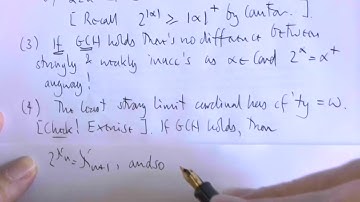 [Recall 2^|α| ≥ |α|^+ by Cantor.].
(3) If GCH holds there's no difference between
strongly & weakly inacc's as α∈Card 2^α = α^+
anyway!
(4) The least strong limit cardinal has cf'ty = ω.
[Check! Exercise]. If GCH holds, then
2^ℵn = ℵn+1, and so